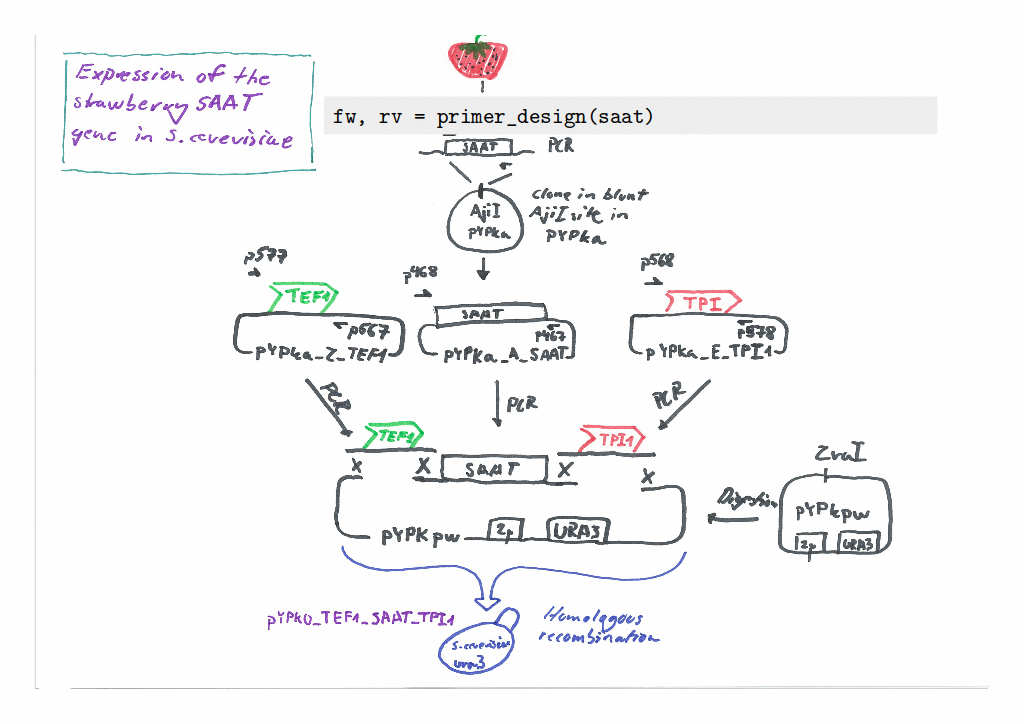 Expression of the
strawberry SAAT
gene in S. cerevisiae
fw, rv = primer_design(saat)
SAAT PCR
AjiI
pYPka
Clone in blunt
AjiI site in
pYPka
p577
TEF1
p667
pYPka_Z_TEF1
p468
SAAT
p467
pYPKa_A_SAAT
p568
TPI
p578
pYPka_E_TPI1
PCR
PCR
PCR
TEF1
TPI1
X X SAAT X X
pYPKpw 2µ URA3
Digestion
ZraI
pYPkpw
2µ URA3
pYPK0_TEF1_SAAT_TPI1
Homologous
recombination
S. cerevisiae
ura3